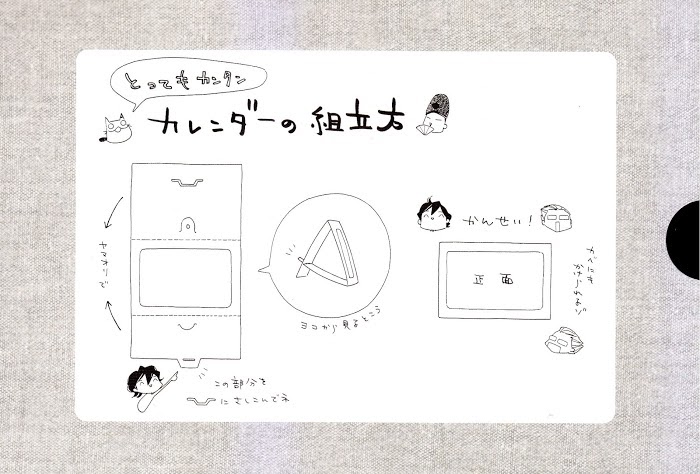 とってもカンタン
カレンダーの組立方
ヤマオリで
ヨコから見たところ
この部分を
にさしこんでネ
かんせい!
正面
カベにも
かけれるゾ